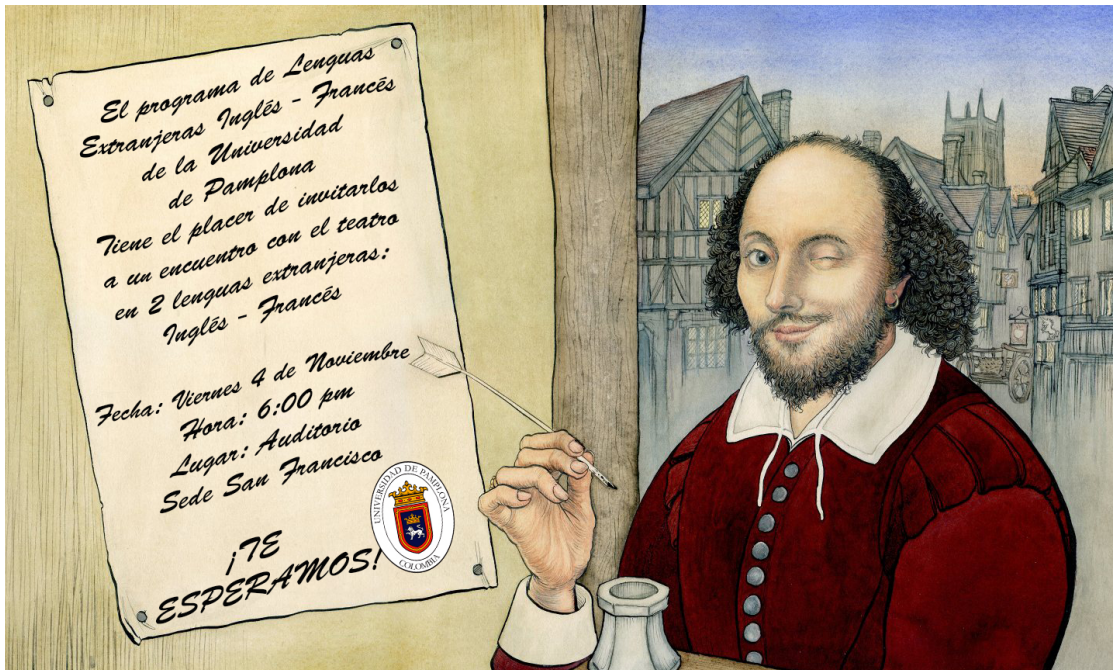 El programa de Lenguas
Extranjeras Inglés - Francés
de la Universidad
de Pamplona
Tiene el placer de invitarlos
a un encuentro con el teatro
en 2 lenguas extranjeras:
Inglés - Francés
Fecha: Viernes 4 de Noviembre
Hora: 6:00 pm
Lugar: Auditorio
Sede San Francisco
¡TE
ESPERAMOS!
UNIVERSIDAD DE PAMPLONA
COLOMBIA